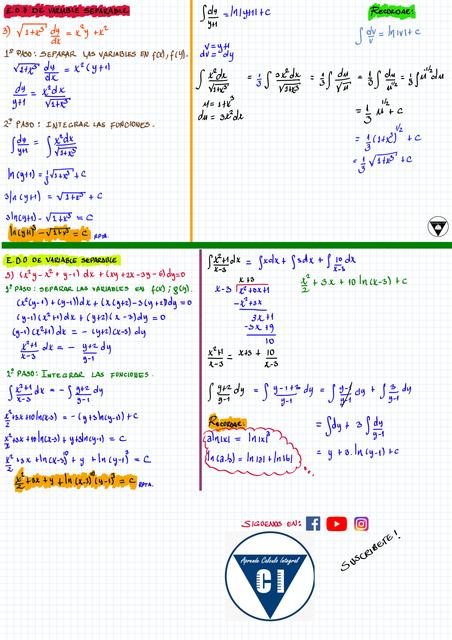 E.D.O DE VARIABLE SEPARABLE
3) √(1+x³) dy/dx = x²y + x²
1º PASO: SEPARAR LAS VARIABLES EN f(x), f(y).
√(1+x³) dy/dx = x²(y+1)
dy/(y+1) = x²dx/√(1+x³)
2º PASO: INTEGRAR LAS FUNCIONES.
∫ dy/(y+1) = ∫ x²dx/√(1+x³)
ln(y+1) = 1/3 √(1+x³) + C
3ln(y+1) = √(1+x³) + C
3ln(y+1) - √(1+x³) = C
ln(y+1)³ - √(1+x³) = C RPTA.
∫ dy/(y+1) = ln|y+1| + C
v = y+1
dv = dy
RECORDAR:
∫ dv/v = ln|v| + C
∫ x²dx/√(1+x³) = 1/3 ∫ 3x²dx/√(1+x³) = 1/3 ∫ du/√u = 1/3 ∫ du/u^(1/2) = 1/3 ∫ u^(-1/2) du
u = 1+x³
du = 3x²dx
= 1/3 u^(1/2) + C
= 1/3 (1+x³)^(1/2) + C
= 1/3 √(1+x³) + C
E.D.O DE VARIABLE SEPARABLE
3) (x²y - x² + y - 1) dx + (xy + 2x - 3y - 6) dy = 0
1º PASO: SEPARAR LAS VARIABLES EN f(x); g(y).
(x²(y-1) + (y-1)) dx + (x(y+2) - 3(y+2)) dy = 0
(y-1)(x²+1) dx + (y+2)(x-3) dy = 0
(y-1)(x²+1) dx = -(y+2)(x-3) dy
x²+1/x-3 dx = - y+2/y-1 dy
2º PASO: INTEGRAR LAS FUNCIONES.
∫ x²+1/x-3 dx = -∫ y+2/y-1 dy
x²/2 + 3x + 10 ln(x-3) = -(y + 3 ln(y-1)) + C
x²/2 + 3x + 10 ln(x-3) + y + 3 ln(y-1) = C
x²/2 + 3x + ln(x-3)¹⁰ + y + ln(y-1)³ = C
x²/2 + 3x + y + ln(x-3)¹⁰(y-1)³ = C RPTA.
∫ x²+1/x-3 dx = ∫ x dx + ∫ 3 dx + ∫ 10/x-3 dx
x²/2 + 3x + 10 ln(x-3) + C
x+3
x-3 x²+0x+1
-x²+3x
3x+1
-3x+9
10
x²+1/x-3 = x+3 + 10/x-3
∫ y+2/y-1 dy = ∫ y-1+3/y-1 dy = ∫ y-1/y-1 dy + ∫ 3/y-1 dy
= ∫ dy + 3 ∫ dy/y-1
= y + 3 ln(y-1) + C
RECORDAR:
a ln|x| = ln|x|ᵃ
ln(a.b) = ln|a| + ln|b|
SIGUENOS EN:
SUSCRIBETE!
Aprende Calculo Integral
CI